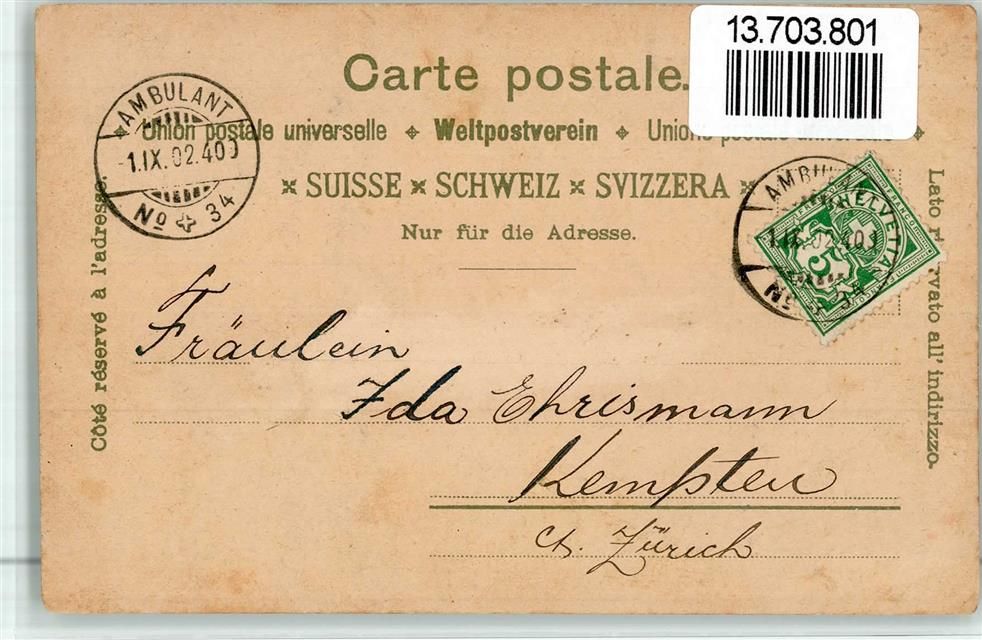 13.703.801
Carte postale.
Union postale universelle Weltpostverein Unione postale
SUISSE SCHWEIZ SVIZZERA
Nur für die Adresse.
AMBULANT
-1.IX.02.400
No 34
AMBU
1.IX.02.400
No 34
HELVETIA
FRANCO
5
Côté réservé à l'adresse.
Lato ri vato all' indirizzo.
Fräulein
Ida Ehrismann
Kempten
Ct. Zürich